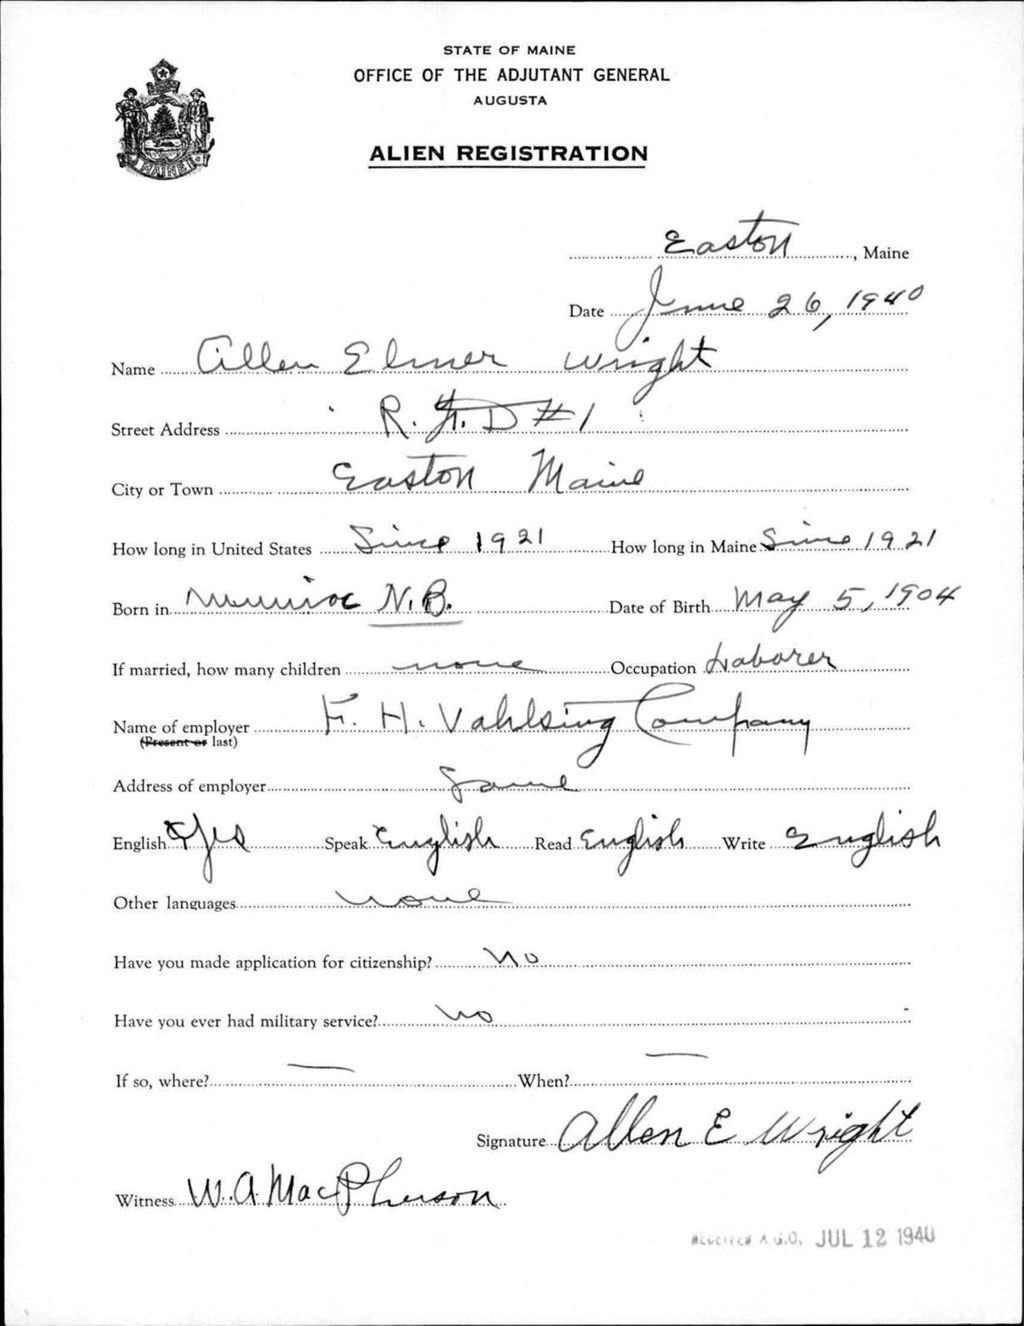 STATE OF MAINE
OFFICE OF THE ADJUTANT GENERAL
AUGUSTA
ALIEN REGISTRATION
MAINE
Easton, Maine
Date June 26, 1940
Name Allen Elmer Wright
Street Address R.F.D #1
City or Town Easton Maine
How long in United States Since 1921 How long in Maine Since 1921
Born in N.B. Date of Birth May 5, 1904
If married, how many children none Occupation Laborer
Name of employer F. H. Vahlsing Company
(Present or last)
Address of employer Same
English Yes Speak English Read English Write English
Other languages none
Have you made application for citizenship? No
Have you ever had military service? No
If so, where? — When? —
Signature Allen E Wright
Witness W. A. MacPherson
RECEIVED A.G.O. JUL 12 1940